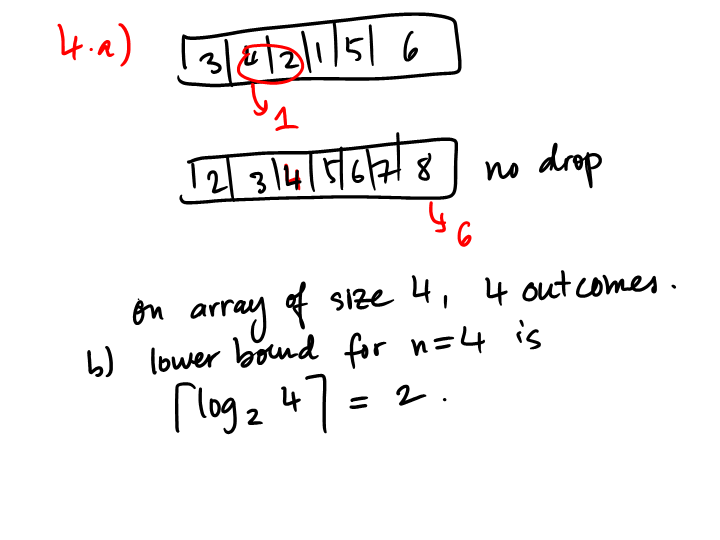 4.a) 3 | 4 | 2 | 1 | 5 | 6
1
2 | 3 | 4 | 5 | 6 | 7 | 8 no drop
6
on array of size 4, 4 outcomes.
b) lower bound for n=4 is
⌈log₂ 4⌉ = 2.